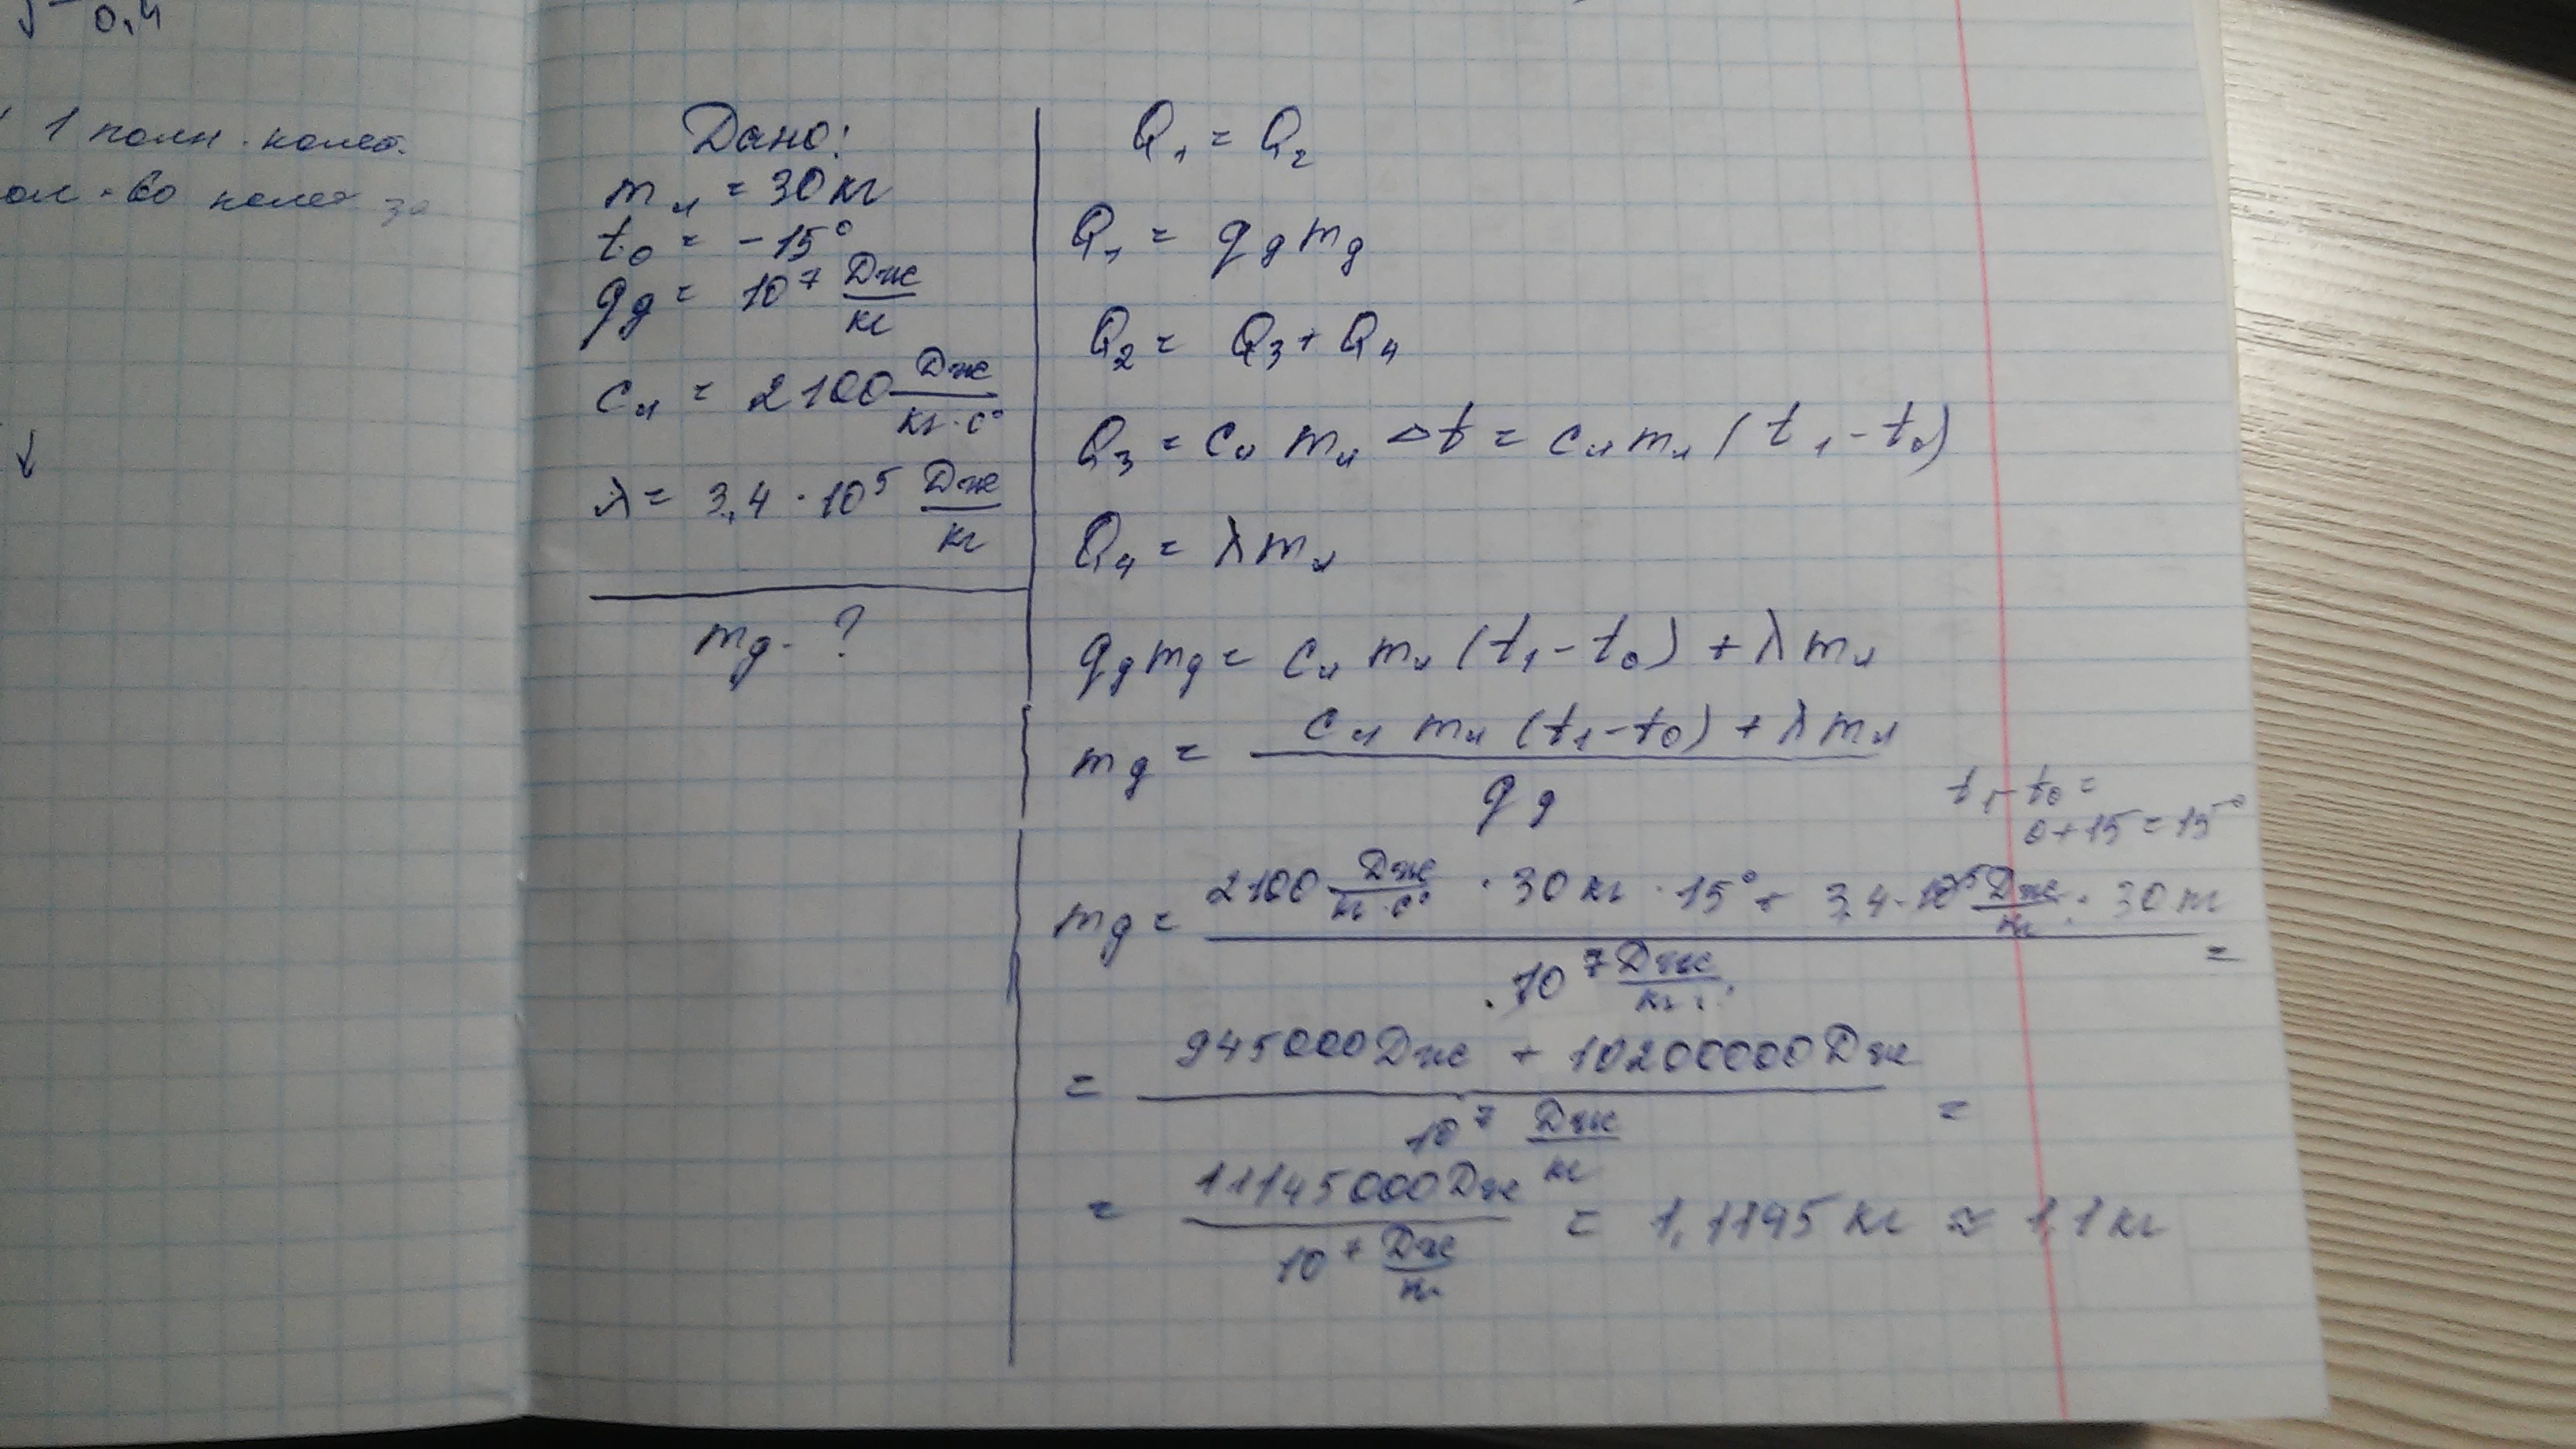 0,4
1 полн. колеб.
Дано:
m л = 30 кг
t₀ = -15°
q д = 10⁷ Дж/кг
c л = 2100 Дж/кг·c°
λ = 3,4 · 10⁵ Дж/кг
m д - ?
Q₁ = Q₂
Q₁ = q д m д
Q₂ = Q₃ + Q₄
Q₃ = c л m л Δt = c л m л (t₁ - t₀)
Q₄ = λ m л
q д m д = c л m л (t₁ - t₀) + λ m л
m д = c л m л (t₁ - t₀) + λ m л / q д
t₁ - t₀ =
0 + 15 = 15°
m д = 2100 Дж/кг·c° · 30 кг · 15° + 3,4 · 10⁵ Дж/кг · 30 кг / 10⁷ Дж/кг =
= 945000 Дж + 10200000 Дж / 10⁷ Дж/кг =
= 11145000 Дж / 10⁷ Дж/кг = 1,1145 кг ≈ 1,1 кг